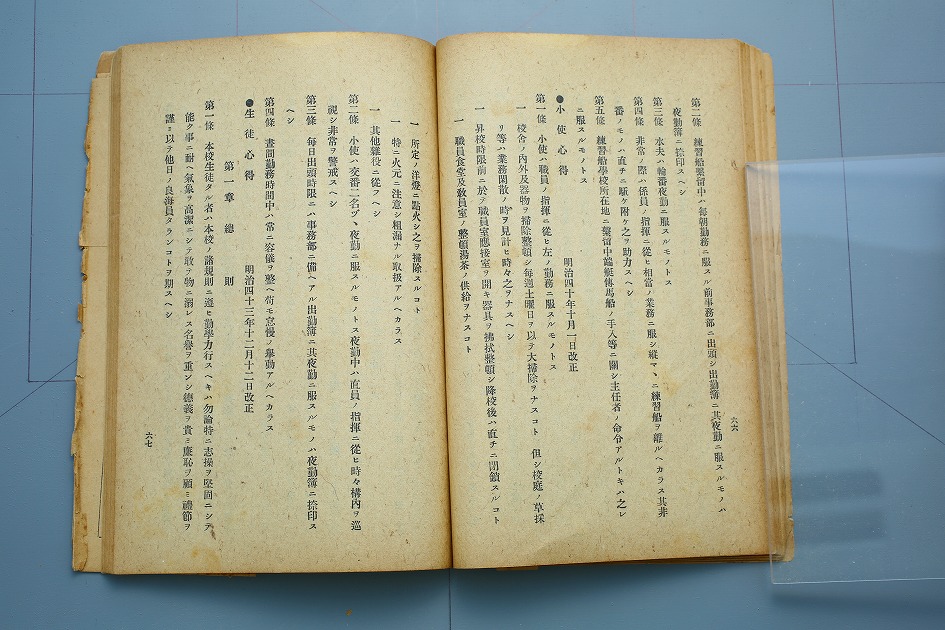 第二條　練習船繫留中ハ每朝勤務ニ服スル前事務部ニ出頭シ出勤簿ニ其夜勤ニ服スルモノハ
夜勤簿ニ捺印スヘシ
第三條　水夫ハ輪番夜勤ニ服スルモノトス
第四條　非常ノ際ハ係員ノ指揮ニ從ヒ相當ノ業務ニ服シ縱マヽニ練習船ヲ離ルヘカラス其非
番ノモノハ直チニ駈ケ附ケ之ヲ助力スヘシ
第五條　練習船學校所在地ニ繫留中端艇傳馬船ノ手入等ニ關シ主任者ノ命令アルトキハ之レ
ニ服スルモノトス
●小使心得　明治四十年十月一日改正
第一條　小使ハ職員ノ指揮ニ從ヒ左ノ勤務ニ服スルモノトス
一　校舍ノ內外及器物ヲ掃除整頓シ每週土曜日ヲ以テ大掃除ヲナスコト　但シ校庭ノ草採
リ等ハ業務閑散ノ時ヲ見計ヒ時々之ヲナスヘシ
一　昇校時限前ニ於テ職員室應接室ヲ開キ器具ヲ拂拭整頓シ降校後ハ直チニ閉鎖スルコト
一　職員食堂及敎員室ノ整頓湯茶ノ供給ヲナスコト
六六
一　所定ノ洋燈ニ點火シ之ヲ掃除スルコト
一　特ニ火元ニ注意シ粗漏ナル取扱アルヘカラス
一　其他雜役ニ從フヘシ
第二條　小使ハ交番二名ヅヽ夜勤ニ服スルモノトス夜勤中ハ直員ノ指揮ニ從ヒ時々構內ヲ巡
視シ非常ヲ警戒スヘシ
第三條　每日出頭時限ニハ事務部ニ備ヘアル出勤簿ニ其夜勤ニ服スルモノハ夜勤簿ニ捺印ス
ヘシ
第四條　晝間勤務時間中ハ常ニ容儀ヲ整ヘ苟モ怠慢ノ擧動アルヘカラス
●生徒心得　明治四十三年十二月十二日改正
第一章　總則
第一條　本校生徒タル者ハ本校ノ諸規則ニ遵ヒ勤學力行スヘキハ勿論特ニ志操ヲ堅固ニシテ
能ク事ニ耐ヘ氣象ヲ高潔ニシテ敢テ物ニ溺レス名譽ヲ重ンシ德義ヲ貴ミ廉恥ヲ顧ミ禮節ヲ
謹ミ以テ他日ノ良海員タランコトヲ期スヘシ
六七